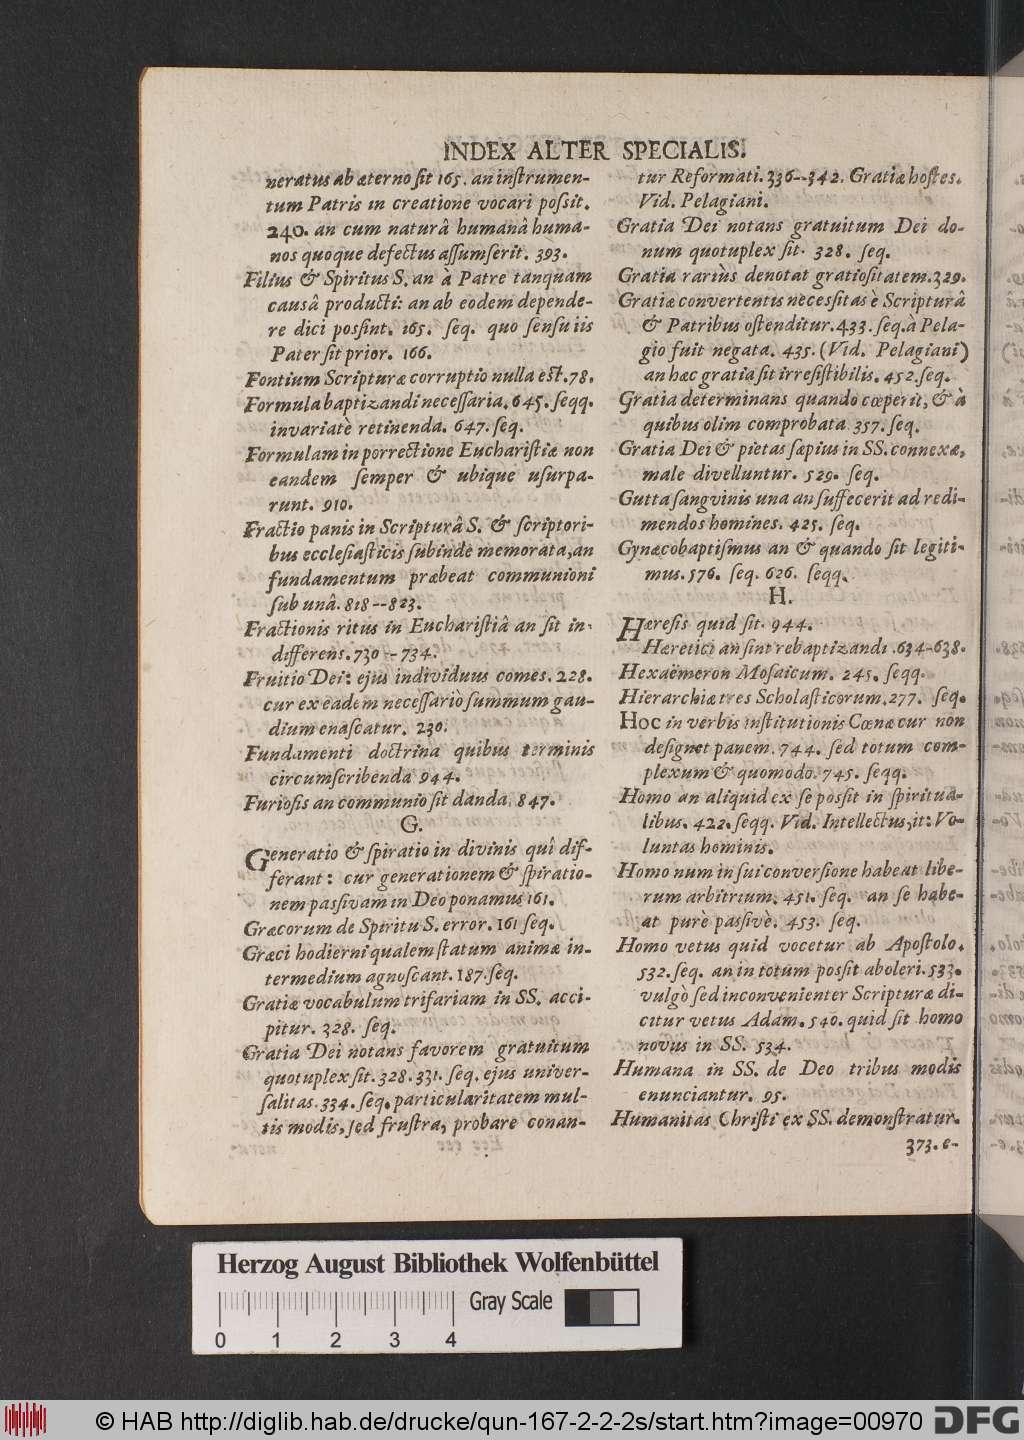 INDEX ALTER SPECIALIS.
neratus ab æterno ſit 165. an inſtrumen-
tum Patris in creatione vocari poſsit.
240. an cum naturâ humanâ huma-
nos quoque defectus aſſumſerit. 393.
Filius & Spiritus S. an à Patre tanquam
causâ producti: an ab eodem depende-
re dici poſsint. 165. ſeq. quo ſenſu iis
Pater ſit prior. 166.
Fontium Scripturæ corruptio nulla eſt. 78.
Formula baptizandi neceſſaria. 645. ſeqq.
invariatè retinenda. 647. ſeq.
Formulam in porrectione Euchariſtiæ non
eandem ſemper & ubique uſurpa-
runt. 910.
Fractio panis in Scripturâ S. & ſcriptori-
bus eccleſiaſticis ſubinde memorata, an
fundamentum præbeat communioni
ſub unâ. 818--823.
Fractionis ritus in Euchariſtiâ an ſit in-
differens. 730--734.
Fruitio Dei: ejus individuus comes. 228.
cur ex eadem neceſſariò ſummum gau-
dium enaſcatur. 230.
Fundamenti doctrina quibus terminis
circumſcribenda 944.
Furioſis an communio ſit danda. 847.
G.
Generatio & ſpiratio in divinis quî dif-
ferant: cur generationem & ſpiratio-
nem paſsivam in Deo ponamus 161.
Græcorum de Spiritu S. error. 161 ſeq.
Græci hodierni qualem ſtatum animæ in-
termedium agnoſcant. 187. ſeq.
Gratiæ vocabulum trifariam in SS. acci-
pitur. 328. ſeq.
Gratia Dei notans favorem gratuitum
quotuplex ſit. 328. 331. ſeq. ejus univer-
ſalitas. 334. ſeq. particularitatem mul-
tis modis, ſed fruſtra, probare conan-
tur Reformati. 336--342. Gratiæ hoſtes.
Vid. Pelagiani.
Gratia Dei notans gratuitum Dei do-
num quotuplex ſit. 328. ſeq.
Gratia rariùs denotat gratioſitatem. 329.
Gratiæ convertentis neceſsitas è Scripturâ
& Patribus oſtenditur. 433. ſeq. à Pela-
gio fuit negata. 435. (Vid. Pelagiani)
an hæc gratia ſit irreſiſtibilis. 452. ſeq.
Gratia determinans quando cœperit, & à
quibus olim comprobata 357. ſeq.
Gratia Dei & pietas ſæpius in SS. connexæ,
male divelluntur. 529. ſeq.
Gutta ſangvinis una an ſuffecerit ad redi-
mendos homines. 425. ſeq.
Gynæcobaptiſmus an & quando ſit legiti-
mus. 576. ſeq. 626. ſeqq.
H.
Hæreſis quid ſit. 944.
Hæretici an ſint rebaptizandi. 634-638.
Hexaëmeron Moſaicum. 245. ſeqq.
Hierarchiæ tres Scholaſticorum. 277. ſeq.
Hoc in verbis inſtitutionis Cœnæ cur non
deſignet panem. 744. ſed totum com-
plexum & quomodo. 745. ſeqq.
Homo an aliquid ex ſe poſsit in ſpiritua-
libus. 422. ſeqq. Vid. Intellectus, it: Vo-
luntas hominis.
Homo num in ſui converſione habeat libe-
rum arbitrium. 451. ſeq. an ſe habe-
at purè paſsivè. 453. ſeq.
Homo vetus quid vocetur ab Apoſtolo.
532. ſeq. an in totum poſsit aboleri. 533.
vulgò ſed inconvenienter Scripturæ di-
citur vetus Adam. 540. quid ſit homo
novus in SS. 534.
Humana in SS. de Deo tribus modis
enunciantur. 95.
Humanitas Chriſti ex SS. demonſtratur.
373. e-
Herzog August Bibliothek Wolfenbüttel
Gray Scale
0 1 2 3 4
© HAB http://diglib.hab.de/drucke/qun-167-2-2-2s/start.htm?image=00970
DFG